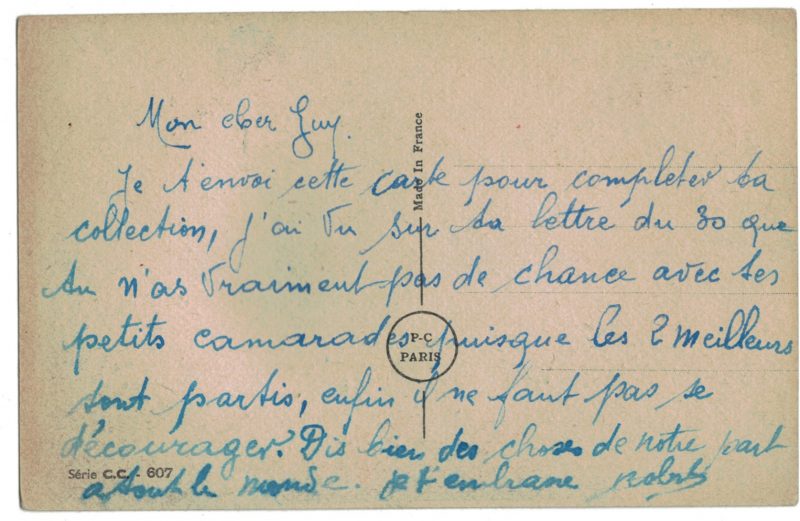 Mon cher Guy.
Je t'envoi cette carte pour completer ta
collection, j'ai vu sur ta lettre du 30 que
tu n'as vraiment pas de chance avec tes
petits camarades puisque les 2 meilleurs
sont partis, enfin il ne faut pas se
décourager. Dis bien des choses de notre part
a tout le monde. je t'embrasse
Made In France
P-C
PARIS
Série C.C. - 607